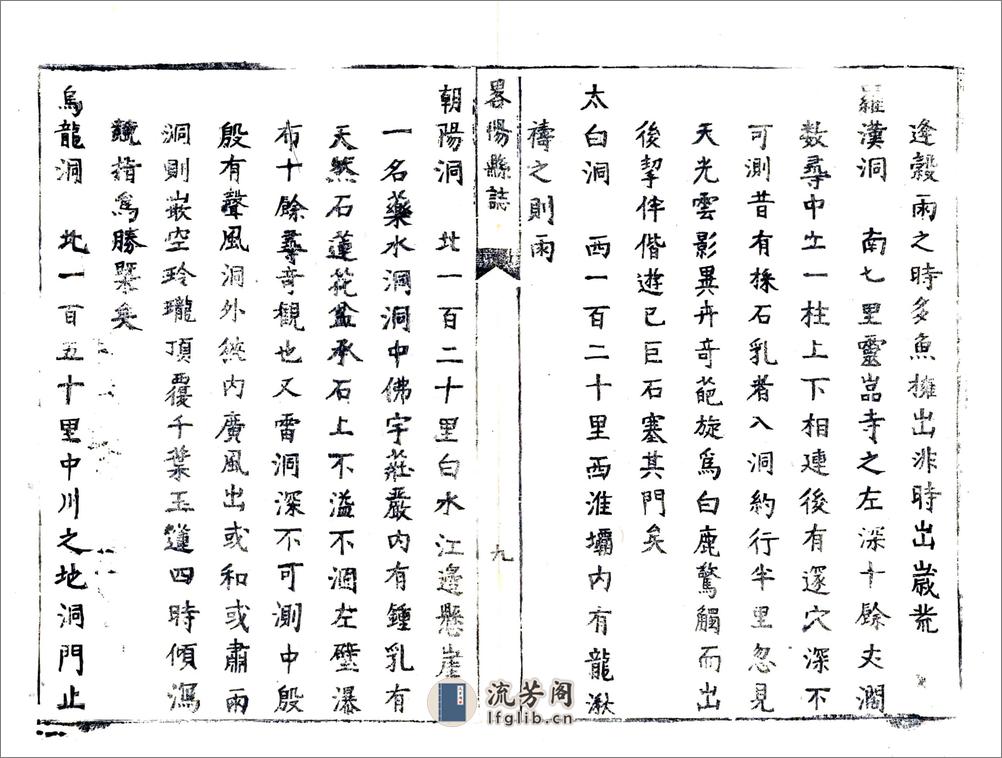 逢穀雨之時多魚擁出非時出歲荒
羅漢洞　南七里靈嵓寺之左深十餘丈濶
数尋中立一柱上下相連後有邃穴深不
可測昔有採石乳者入洞約行半里忽見
天光雲影異卉奇葩旋為白鹿驚觸而出
後挈伴偕遊已巨石塞其門矣
太白洞　西一百二十里西淮壩内有龍湫
禱之則雨
畧陽縣誌
九
朝陽洞　北一百二十里白水江邊懸崖
一名藥水洞洞中佛宇莊嚴内有鍾乳有
天然石蓮花盆承石上不溢不涸左壁瀑
布十餘尋奇觀也又雷洞深不可測中殷
殷有聲風洞外狹内廣風出或和或肅雨
洞則嵌空玲瓏頂覆千葉玉蓮四時傾瀉
競指為勝槩矣
烏龍洞　北一百五十里中川之地洞門止
流芳阁
lfglib.cn